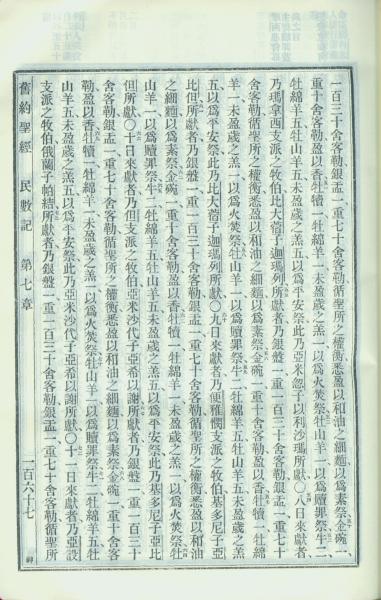 一百三十舍客勒銀盂一重七十舍客勒循聖所之權衡悉盈以和油之細麵以爲素祭金碗一
重十舍客勒盈以香牡犢一牡綿羊一未盈歲之羔一以爲火焚祭牡山羊一以爲贖罪祭牛二
牡綿羊五牡山羊五未盈歲之羔五以爲平安祭此乃亞米忽子以利沙瑪所獻〇八日來獻者
乃瑪拿西支派之牧伯比大蓿子迦瑪列所獻者乃銀盤一重一百三十舍客勒銀盂一重七十
舍客勒循聖所之權衡悉盈以和油之細麵以爲素祭金碗一重十舍客勒盈以香牡犢一牡綿
羊一未盈歲之羔一以爲火焚祭牡山羊一以爲贖罪祭牛二牡綿羊五牡山羊五未盈歲之羔
五以爲平安祭此乃比大蓿子迦瑪列所獻〇九日來獻者乃便雅憫支派之牧伯基多尼子亞
比但所獻者乃銀盤一重一百三十舍客勒銀盂一重七十舍客勒循聖所之權衡悉盈以和油
之細麵以爲素祭金碗一重十舍客勒盈以香牡犢一牡綿羊一未盈歲之羔一以爲火焚祭牡
山羊一以爲贖罪祭牛二牡綿羊五牡山羊五未盈歲之羔五以爲平安祭此乃基多尼子亞比
但所獻〇十日來獻者乃但支派之牧伯亞米沙代子亞希以謝所獻者乃銀盤一重一百三十
舍客勒銀盂一重七十舍客勒循聖所之權衡悉盈以和油之細麵以爲素祭金碗一重十舍客
勒盈以香牡犢一牡綿羊一未盈歲之羔一以爲火焚祭牡山羊一以爲贖罪祭牛二牡綿羊五牡
山羊五未盈歲之羔五以爲平安祭此乃亞米沙代子亞希以謝所獻〇十一日來獻者乃亞設
支派之牧伯俄蘭子帕結所獻者乃銀盤一重一百三十舍客勒銀盂一重七十舍客勒循聖所
舊約聖經 民數記 第七章 一百六十七